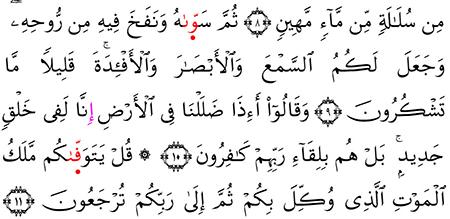 مِن سُلَـٰلَةٍ مِّن مَّآءٍ مَّهِينٍ ۝٨ ثُمَّ سَوّىٰهُ وَنَفَخَ فِيهِ مِن رُّوحِهِۦۖ
وَجَعَلَ لَكُمُ ٱلسَّمْعَ وَٱلْأَبْصَـٰرَ وَٱلْأَفْـِٔدَةَۚ قَلِيلًا مَّا
تَشْكُرُونَ ۝٩ وَقَالُوٓا۟ أَءِذَا ضَلَلْنَا فِى ٱلْأَرْضِ إِنَّا لَفِى خَلْقٍ
جَدِيدٍۭۚ بَلْ هُم بِلِقَآءِ رَبِّهِمْ كَـٰفِرُونَ ۝١٠ ۞ قُلْ يَتَوَفّىٰكُم مَّلَكُ
ٱلْمَوْتِ ٱلَّذِى وُكِّلَ بِكُمْ ثُمَّ إِلَىٰ رَبِّكُمْ تُرْجَعُونَ ۝١١